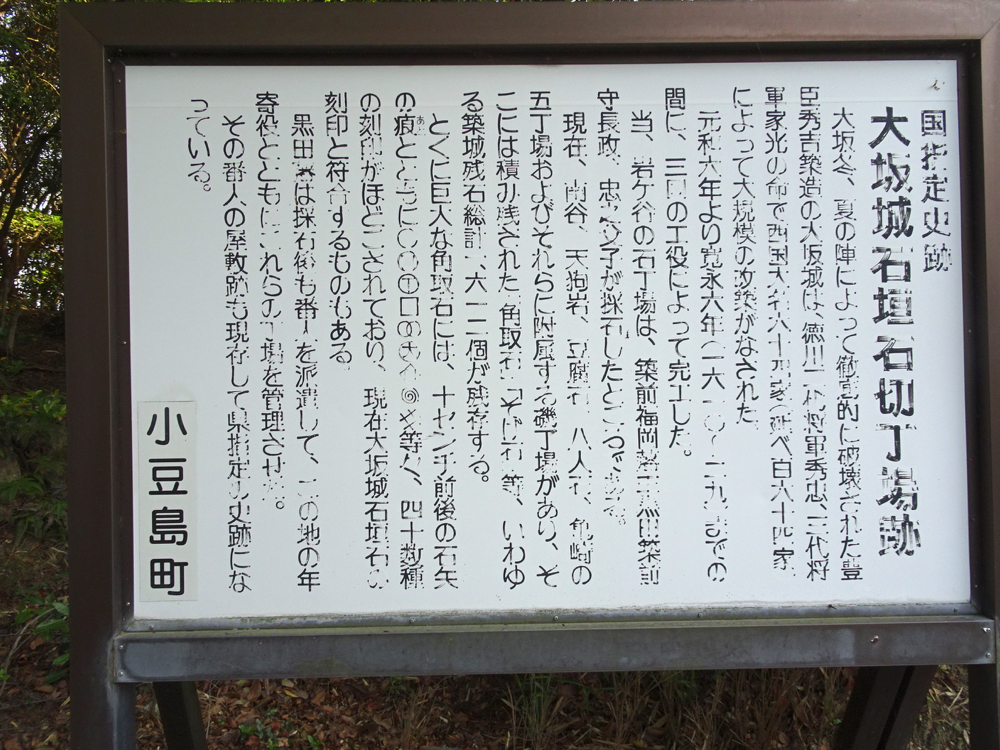 国指定史跡
大坂城石垣石切丁場跡
大坂冬、夏の陣によって徹底的に破壊された豊
臣秀吉築造の大坂城は、徳川二代将軍秀忠、三代将
軍家光の命で西国大名六十家(延べ百六十四家
によって大規模の改築がなされた
元和六年より寛永六年(一六二〇〜二九)までの
間に、三回の工役によって完工した。
当、岩ケ谷の石丁場は、築前福岡藩主黒田築前
守長政、忠之父子が採石したところである。
現在、南谷、天狗岩、豆腐石、八人石、亀崎の
五丁場およびそれらに附属する磯丁場があり、そ
こには積み残された「角取石」「そげ石」等、いわゆ
る築城残石総計一、六一二個が残存する。
とくに巨大な角取石には、十センチ前後の石矢
の痕とともに 等々、四十数種
の刻印がほどこされており、現在大坂城石垣石の
刻印と符合するものもある
黒田藩は採石後も番人を派遣して、この地の年
寄役とともにこれらの丁場を管理させた。
その番人の屋敷跡も現存して県指定の史跡にな
っている。
小豆島町